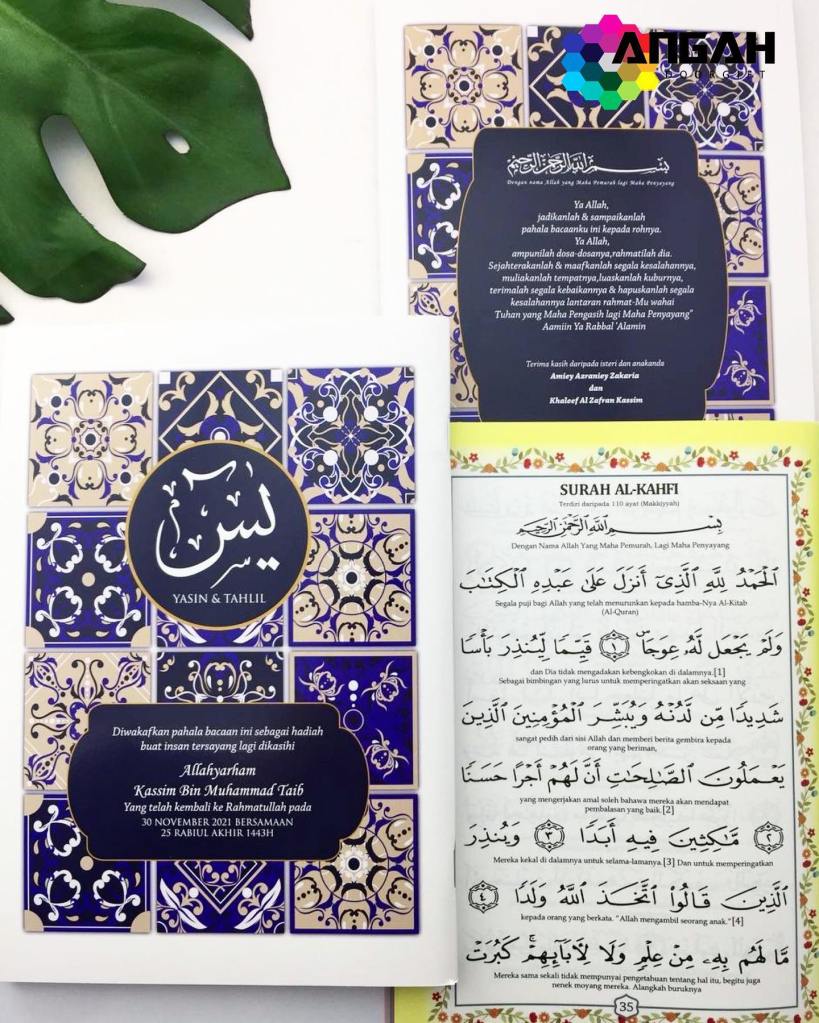 ANGAH
DOORGIFT
بِسْمِ اللَّهِ الرَّحْمَٰنِ الرَّحِيمِ
Dengan nama Allah yang Maha Pemurah lagi Maha Penyayang
Ya Allah,
jadikanlah & sampaikanlah
pahala bacaanku ini kepada rohnya.
Ya Allah,
ampunilah dosa-dosanya,rahmatilah dia.
Sejahterakanlah & maafkanlah segala kesalahannya,
muliakanlah tempatnya,luaskanlah kuburnya,
terimalah segala kebaikannya & hapuskanlah segala
kesalahannya lantaran rahmat-Mu wahai
Tuhan yang Maha Pengasih lagi Maha Penyayang"
Aamiin Ya Rabbal 'Alamin
Terima kasih daripada isteri dan anakanda
Amiey Azraniey Zakaria
dan
Khaleef Al Zafran Kassim
يس
YASIN & TAHLIL
Diwakafkan pahala bacaan ini sebagai hadiah
buat insan tersayang lagi dikasihi
Allahyarham
Kassim Bin Muhammad Taib
Yang telah kembali ke Rahmatullah pada
30 NOVEMBER 2021 BERSAMAAN
25 RABIUL AKHIR 1443H
SURAH AL-KAHFI
Terdiri daripada 110 ayat (Makkiyyah)
بِسْمِ اللَّهِ الرَّحْمَٰنِ الرَّحِيمِ
Dengan Nama Allah Yang Maha Pemurah, Lagi Maha Penyayang
الْحَمْدُ لِلَّهِ الَّذِيٓ أَنزَلَ عَلَىٰ عَبْدِهِ الْكِتَٰبَ
Segala puji bagi Allah yang telah menurunkan kepada hamba-Nya Al-Kitab
(Al-Quran)
وَلَمْ يَجْعَل لَّهُۥ عِوَجَاۜ ١ قَيِّمًا لِّيُنذِرَ بَأْسًا
dan Dia tidak mengadakan kebengkokan di dalamnya.[1]
Sebagai bimbingan yang lurus untuk memperingatkan akan seksaan yang
شَدِيدًا مِّن لَّدُنْهُ وَيُبَشِّرَ الْمُؤْمِنِينَ الَّذِينَ
sangat pedih dari sisi Allah dan memberi berita gembira kepada
orang yang beriman,
يَعْمَلُونَ الصَّٰلِحَٰتِ أَنَّ لَهُمْ أَجْرًا حَسَنًا
yang mengerjakan amal soleh bahawa mereka akan mendapat
pembalasan yang baik.[2]
٢ مَّٰكِثِينَ فِيهِ أَبَدًا ٣ وَيُنذِرَ
Mereka kekal di dalamnya untuk selama-lamanya.[3] Dan untuk memperingatkan
الَّذِينَ قَالُوا۟ اتَّخَذَ اللَّهُ وَلَدًا ٤
kepada orang yang berkata. "Allah mengambil seorang anak."[4]
مَّا لَهُم بِهِۦ مِنْ عِلْمٍ وَلَا لِأٓبَآئِهِمْ ۚ كَبُرَتْ
Mereka sama sekali tidak mempunyai pengetahuan tentang hal itu, begitu juga
nenek moyang mereka. Alangkah buruknya
35